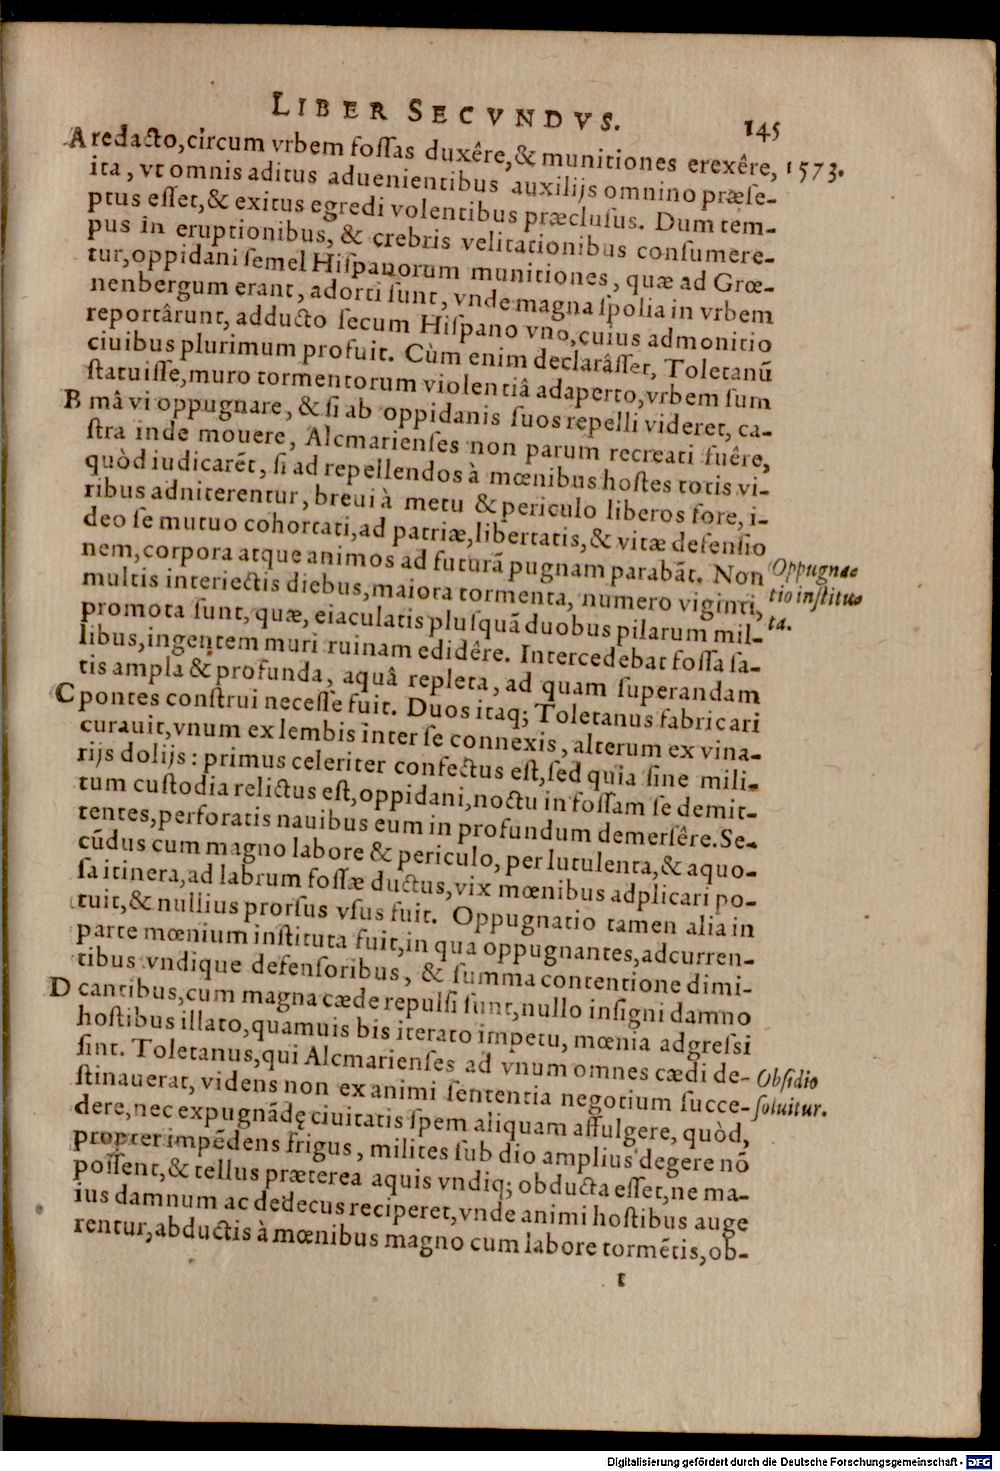 LIBER SECVNDVS. 145
A redacto, circum vrbem foſſas duxêre, & munitiones erexêre, 1573.
ita, vt omnis aditus aduenientibus auxilijs omnino præſe-
ptus eſſet, & exitus egredi volentibus præcluſus. Dum tem-
pus in eruptionibus, & crebris velitationibus conſumere-
tur, oppidani ſemel Hiſpanorum munitiones, quæ ad Grœ-
nenbergum erant, adorti ſunt, vnde magna ſpolia in vrbem
reportârunt, adducto ſecum Hiſpano vno, cuius admonitio
ciuibus plurimum profuit. Cùm enim declarâſſet, Toletanū
ſtatuiſſe, muro tormentorum violentiâ adaperto, vrbem ſum
B mâ vi oppugnare, & ſi ab oppidanis ſuos repelli videret, ca-
ſtra inde mouere, Alcmarienſes non parum recreati fuêre,
quòd iudicarēt, ſi ad repellendos à mœnibus hoſtes totis vi-
ribus adniterentur, breui à metu & periculo liberos fore, i-
deo ſe mutuo cohortati, ad patriæ, libertatis, & vitæ defenſio
nem, corpora atque animos ad futurā pugnam parabāt. Non Oppugna-
multis interiectis diebus, maiora tormenta, numero viginti, tio inſtitu-
promota ſunt, quæ, eiaculatis pluſquā duobus pilarum mil- ta.
libus, ingentem muri ruinam edidêre. Intercedebat foſſa ſa-
tis ampla & profunda, aquâ repleta, ad quam ſuperandam
C pontes conſtrui neceſſe fuit. Duos itaq; Toletanus fabricari
curauit, vnum ex lembis inter ſe connexis, alterum ex vina-
rijs dolijs: primus celeriter confectus eſt, ſed quia ſine mili-
tum cuſtodia relictus eſt, oppidani, noctu in foſſam ſe demit-
tentes, perforatis nauibus eum in profundum demerſêre. Se-
cūdus cum magno labore & periculo, per lutulenta, & aquo-
ſa itinera, ad labrum foſſæ ductus, vix mœnibus adplicari po-
tuit, & nullius prorſus vſus fuit. Oppugnatio tamen alia in
parte mœnium inſtituta fuit, in qua oppugnantes, adcurren-
tibus vndique defenſoribus, & ſumma contentione dimi-
D cantibus, cum magna cæde repulſi ſunt, nullo inſigni damno
hoſtibus illato, quamuis bis iterato impetu, mœnia adgreſsi
ſint. Toletanus, qui Alcmarienſes ad vnum omnes cædi de- Obſidio
ſtinauerat, videns non ex animi ſententia negotium ſucce- ſoluitur.
dere, nec expugnādę ciuitatis ſpem aliquam affulgere, quòd,
propter impēdens frigus, milites ſub dio amplius degere nō
poſſent, & tellus præterea aquis vndiq; obducta eſſet, ne ma-
ius damnum ac dedecus reciperet, vnde animi hoſtibus auge
rentur, abductis à mœnibus magno cum labore tormētis, ob-
t
Digitalisierung gefördert durch die Deutsche Forschungsgemeinschaft - DFG